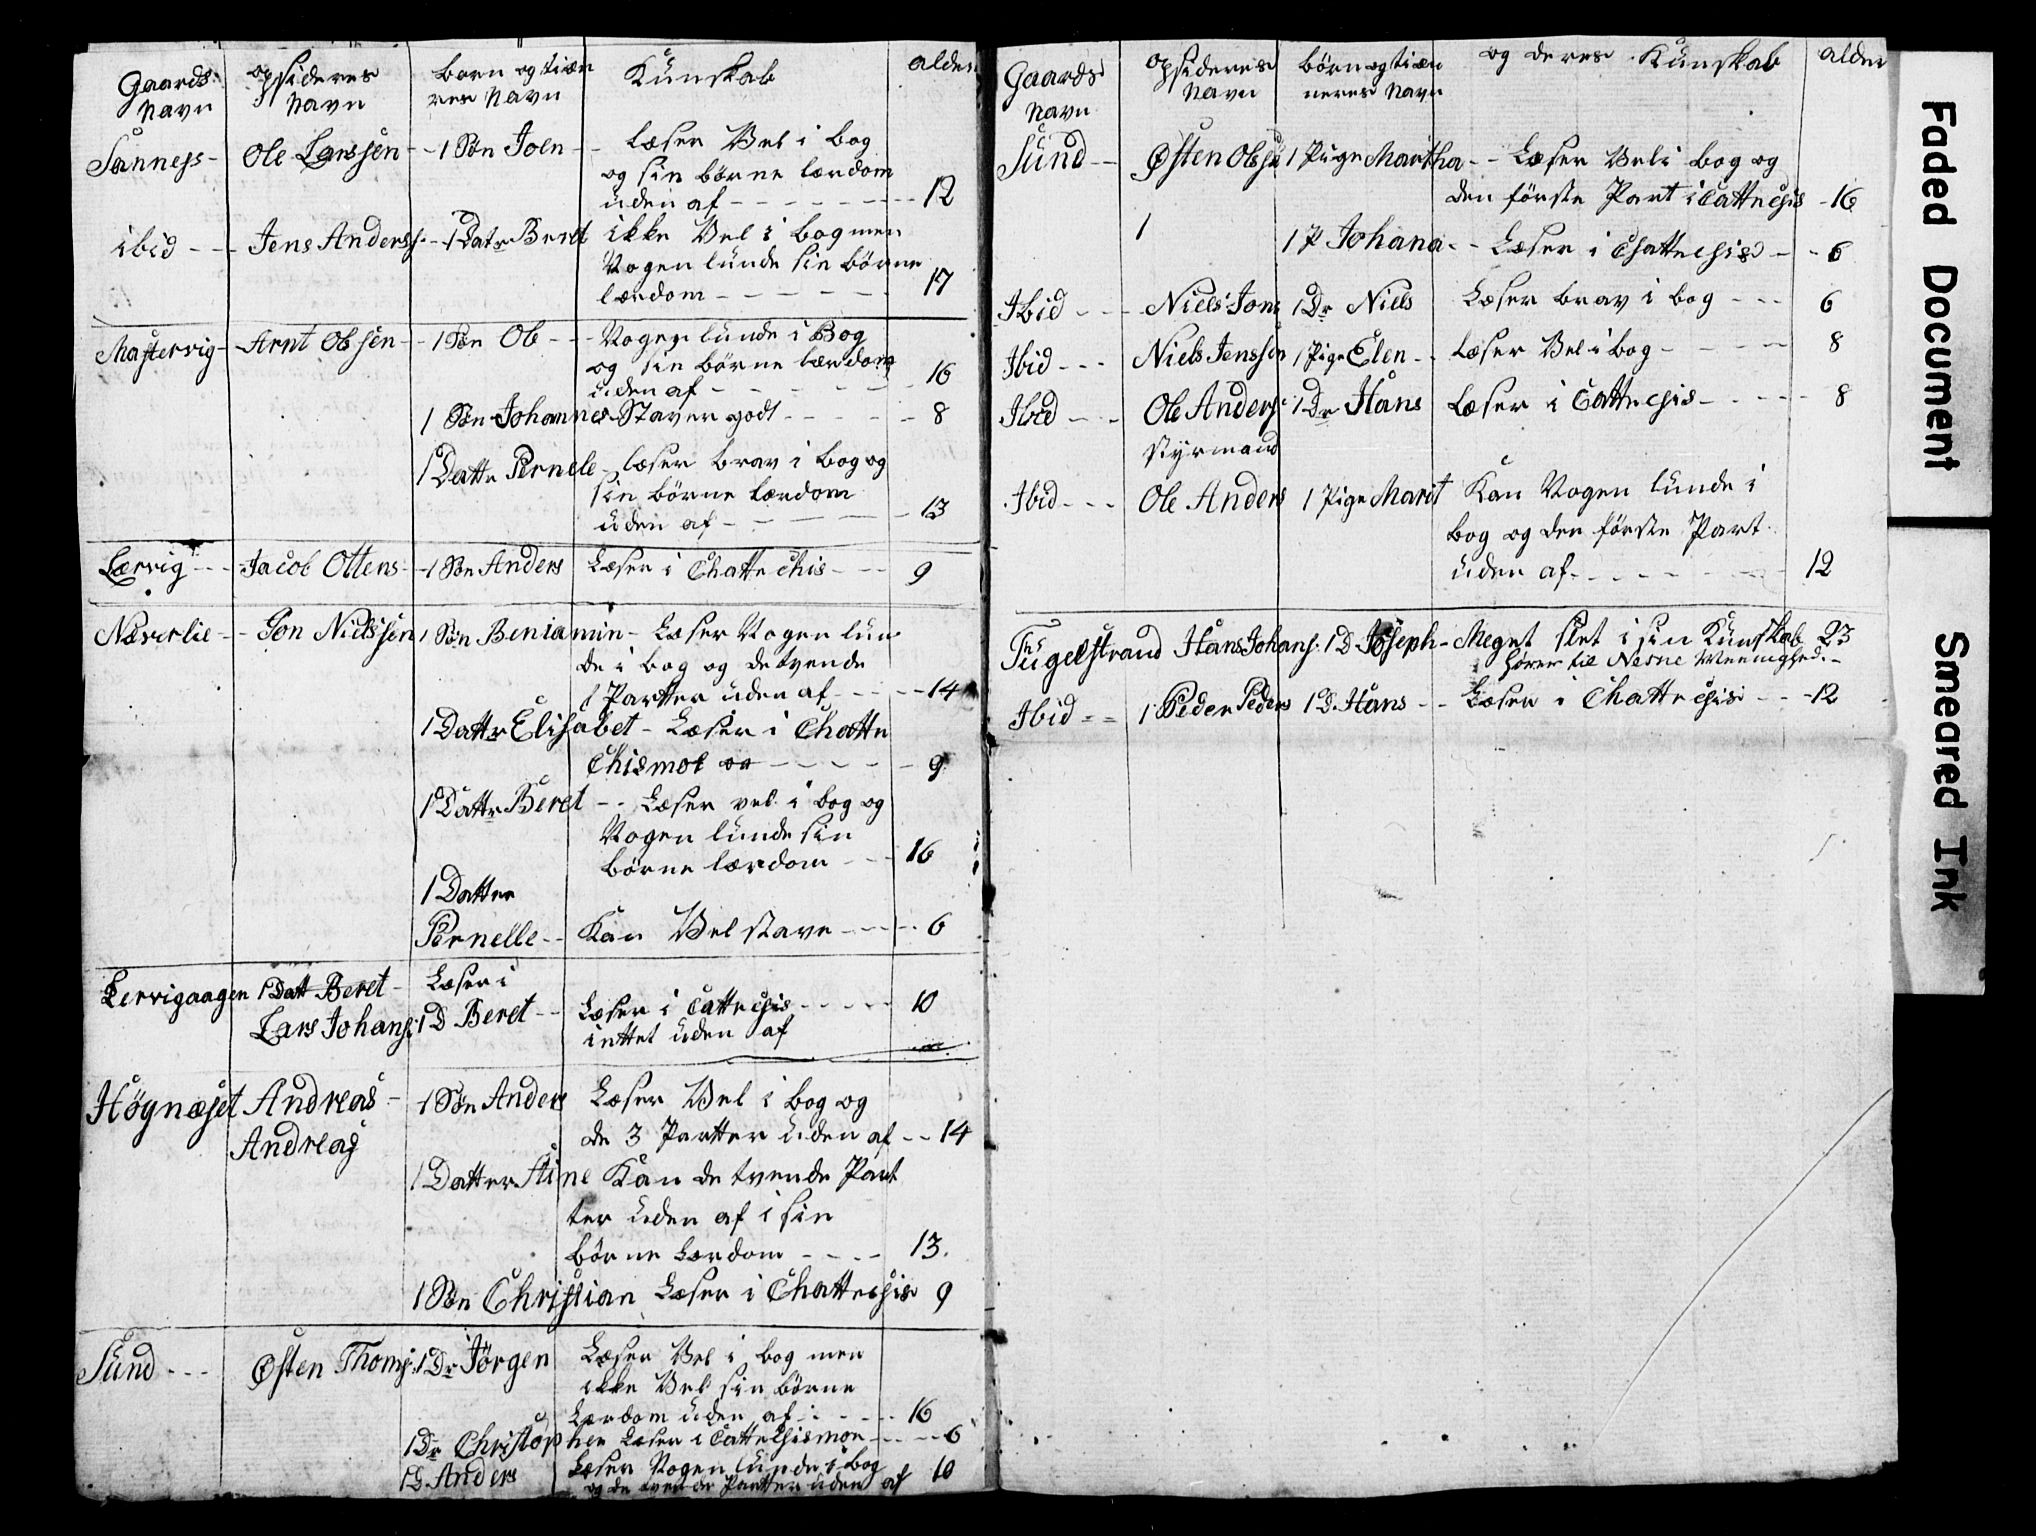 Gaards Navn | opsideres Navn | børn og tiæn res Navn | Kunskab | alder
Sanness - Ole Larssen - 1 Søn Joen - læser Vel i bog
og sin børne lærdom
uden af - 12
ibid - Jens Anderss. - 1 Datr Beret ikke Vel i bog men
Nogenlunde sin børne
lærdom - 17
Mastervig - Arnt Olssen - 1 Søn Ole - Nogenlunde i Bog
og sin børne lærdom
uden af - 16
1 Søn Johannes - Staver godt - 8
1 Dattr Pernele - læser brav i bog og
sin børne lærdom
uden af - 13
Lærvig - Jacob Ottens - 1 Søn Anders Læser i Chattechis - 9
Næverlie - Jon Nielssen 1 Søn Beniamin - Læser Nogenlun
de i bog og de tvende
Partter uden af - 14
1 Dattr Elisabet - Læser i Chatte
Chismol og - 9
1 Dattr Beret - Læser vel i bog og
Nogenlunde sin
børne lærdom - 16
1 Datter
Pernelle - Kan Vel stave - 6
Lervigaagen 1 Datt Beret - Læser i
Lars Johans: 1 D Beret - Læser i Cattechis - 10
inttet uden af
Høgnæset Andreas - 1 Søn Anders Læser Vel i bog og
Andreas de 3 Partter uden af - 14
1 Datter Stine Kan de tvende Part
ter uden af i sin
børne Lærdom - 13.
1 Søn Christian Læser i Chattechis 9
Sund - Østen Thoms: 1 Dr Jørgen Læser Vel i bog men
ikke Vel sin børne
Lærdom uden af - 16
1 Dr Christopher Læser i Cattechismon - 6
1 D. Anders Læser Nogenlunde i bog 10
og de tvende Partter uden af
Gaards Navn | opsideres Navn | børn og tiæn neres Navn | og deres Kunskab | alder
Sund - Østen Olss 1 Pige Martha - Læser Vel i bog og
den første Part i Cattechis - 16
1 1 P Johana - Læser i Chattechis - 6
Ibid - Niels Jons 1 Dr Niels Læser brav i bog - 6
Ibid - Niels Jenssen 1 Pige Elen - Læser Vel i bog - 8
Ibid - Ole Anders: 1 Dr Hans Læser i Cattechis - 8
Styrmand
Ibid - Ole Anders 1 Pige Marit Kan Nogenlunde i
bog og den første Part
uden af - 12
Hans Johans: 1 D Joseph - Meget slet i sin Kunskab 23
hører til Nesne Meenighed. -
Ibid - 1 Peder Peders 1 D. Hans - Læser i Chattechis - 12
Faded Document
Smeared Ink